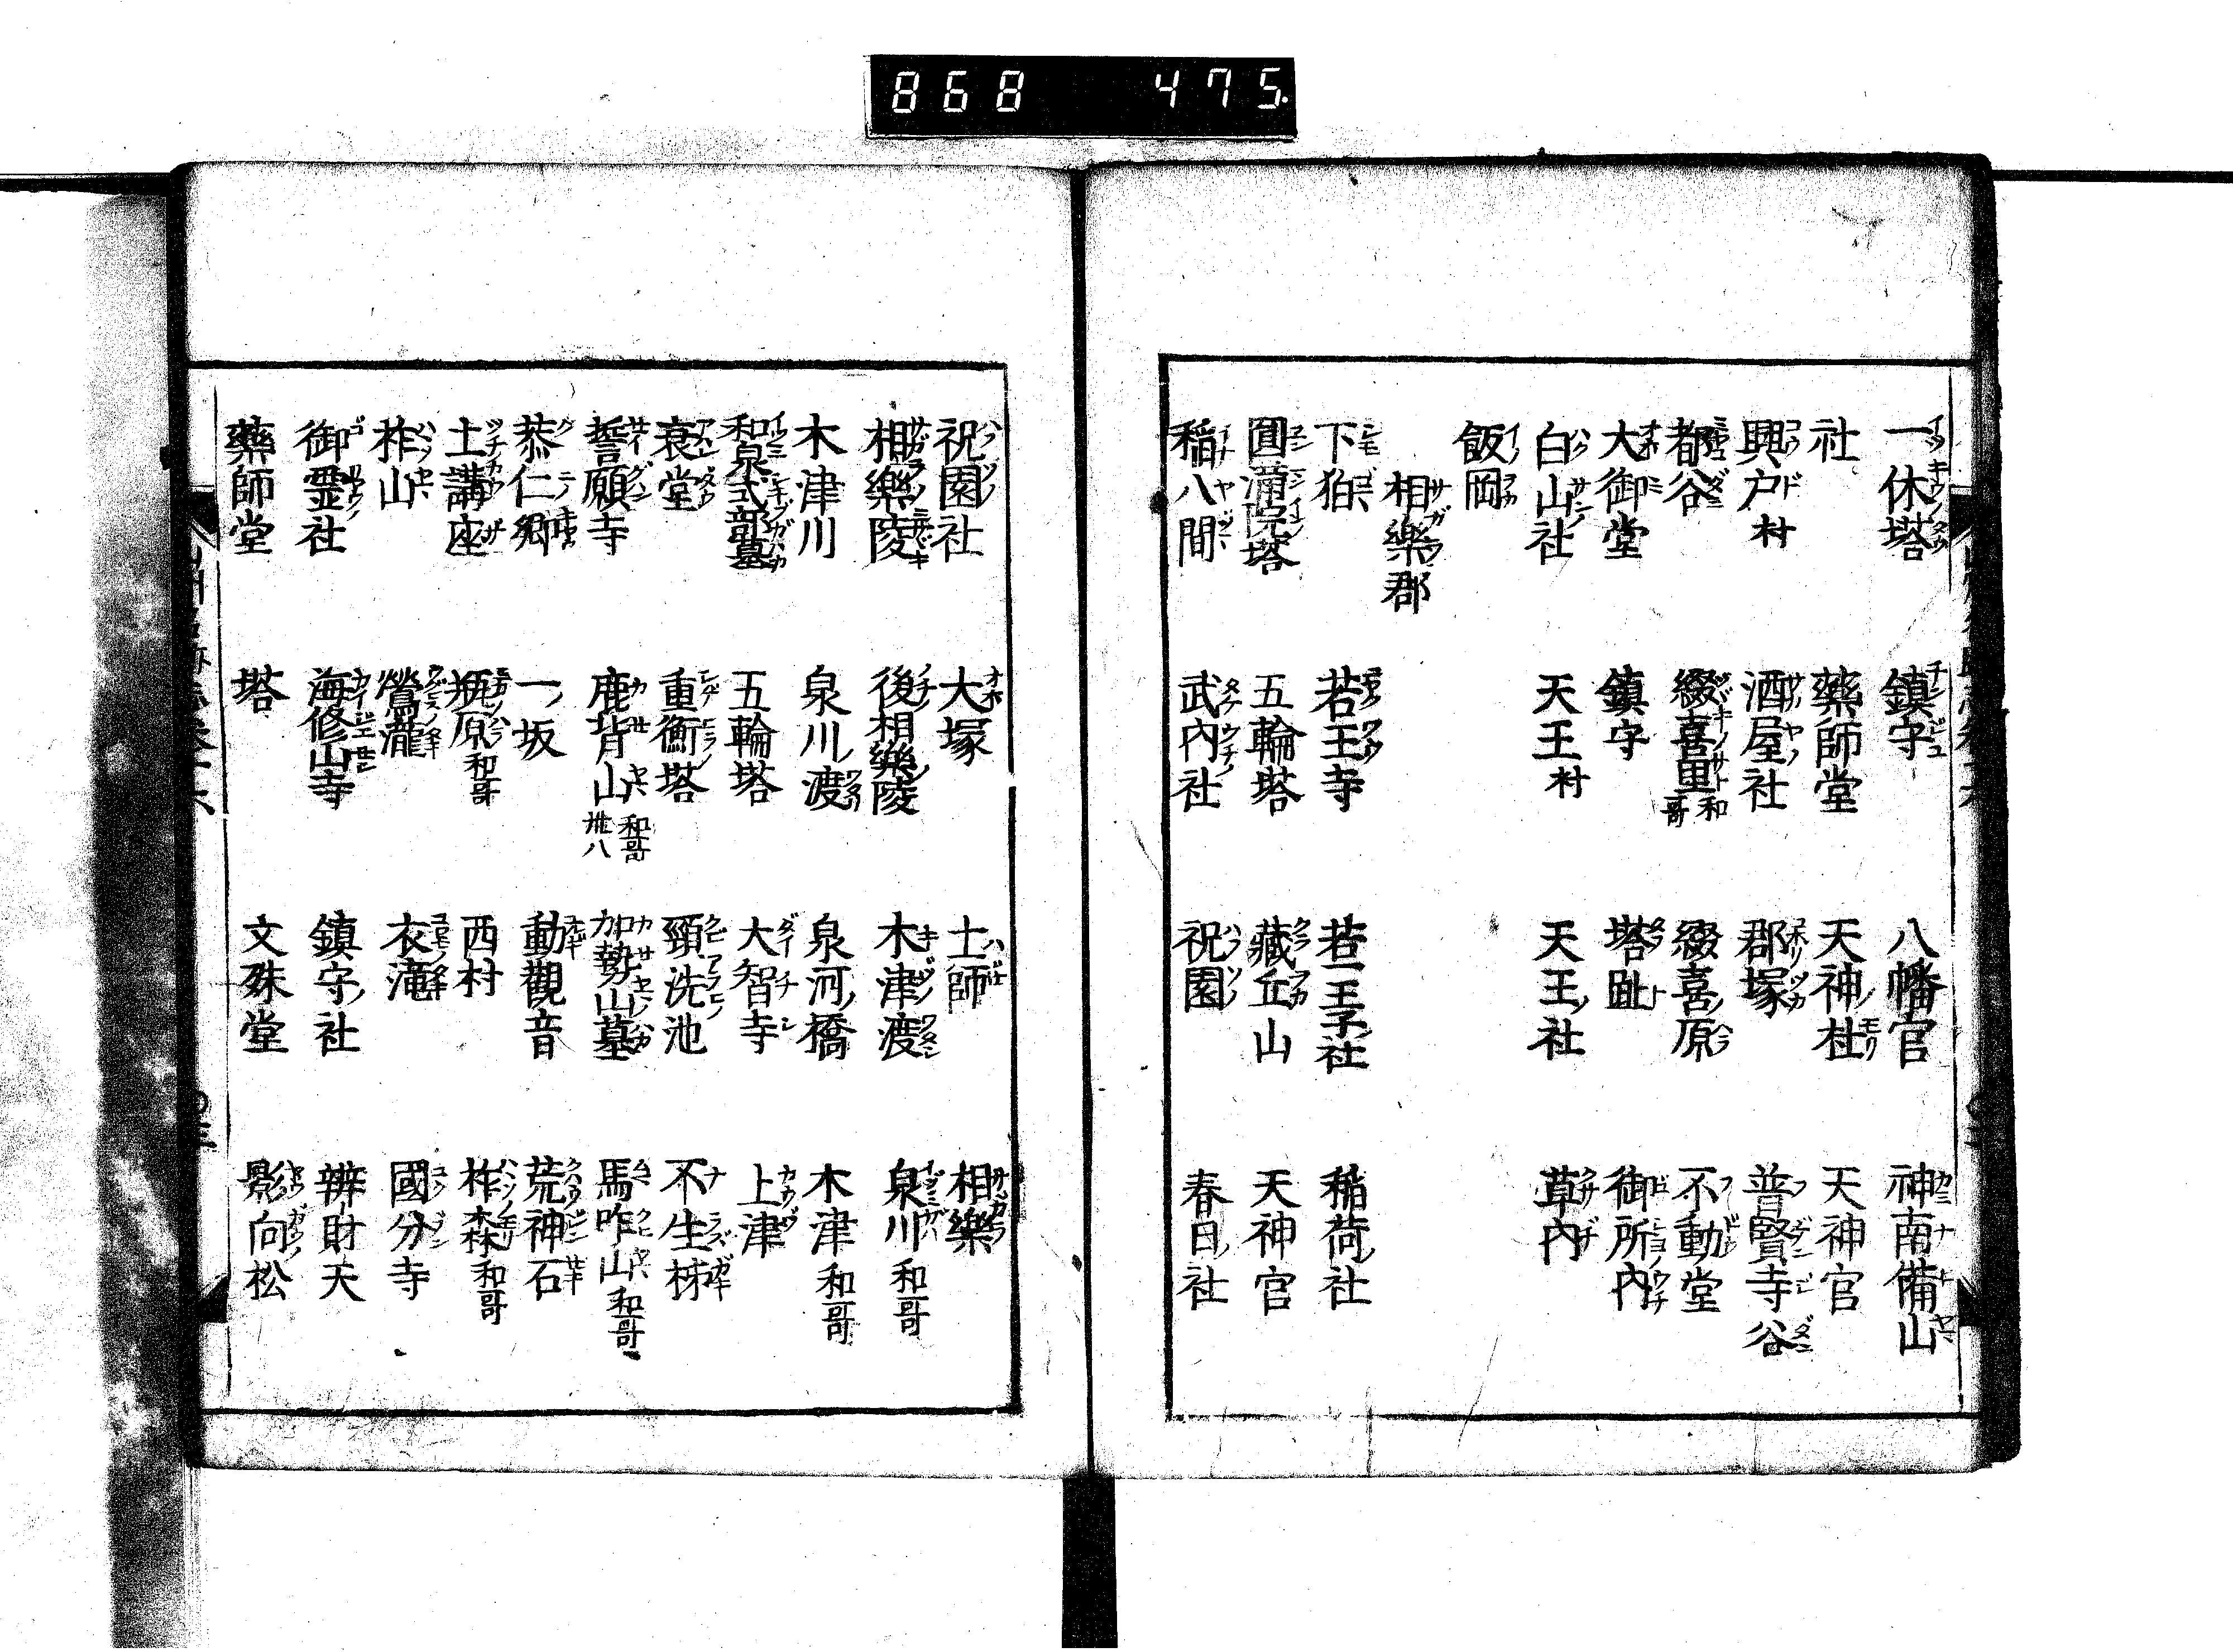 868 475
一休塔 鎮守 八幡宮 神南備山
社 藥師堂 天神杜 天神宮
興戸村 酒屋社 郡塚 普賢寺谷
都谷 綴喜里 和哥 綴喜原 不動堂
大御堂 鎮守 塔趾 御所内
白山社 天王村 天王社 草内
飯岡
相樂郡
下狛 若王寺 若王子社 稲荷社
圓満院塔 五輪塔 藏丘山 天神宮
稲八間 武内社 祝園 春日社
祝園社 大塚 土師 相樂
相樂陵 後相樂陵 木津渡 泉川 和哥
木津川 泉川渡 泉河橋 木津 和哥
和泉式部墓 五輪塔 大智寺 上津
哀堂 重衡塔 頸洗池 不生柹
誓願寺 鹿背山 和哥 卅八 加勢山墓 馬咋山 和哥
恭仁郷 一坂 動觀音 荒神石
土講座 瓶原 和哥 西村 柞森 和哥
柞山 鶯瀧 衣滝 國分寺
御霊社 海修山寺 鎮守社 辨財天
藥師堂 塔 文殊堂 影向松